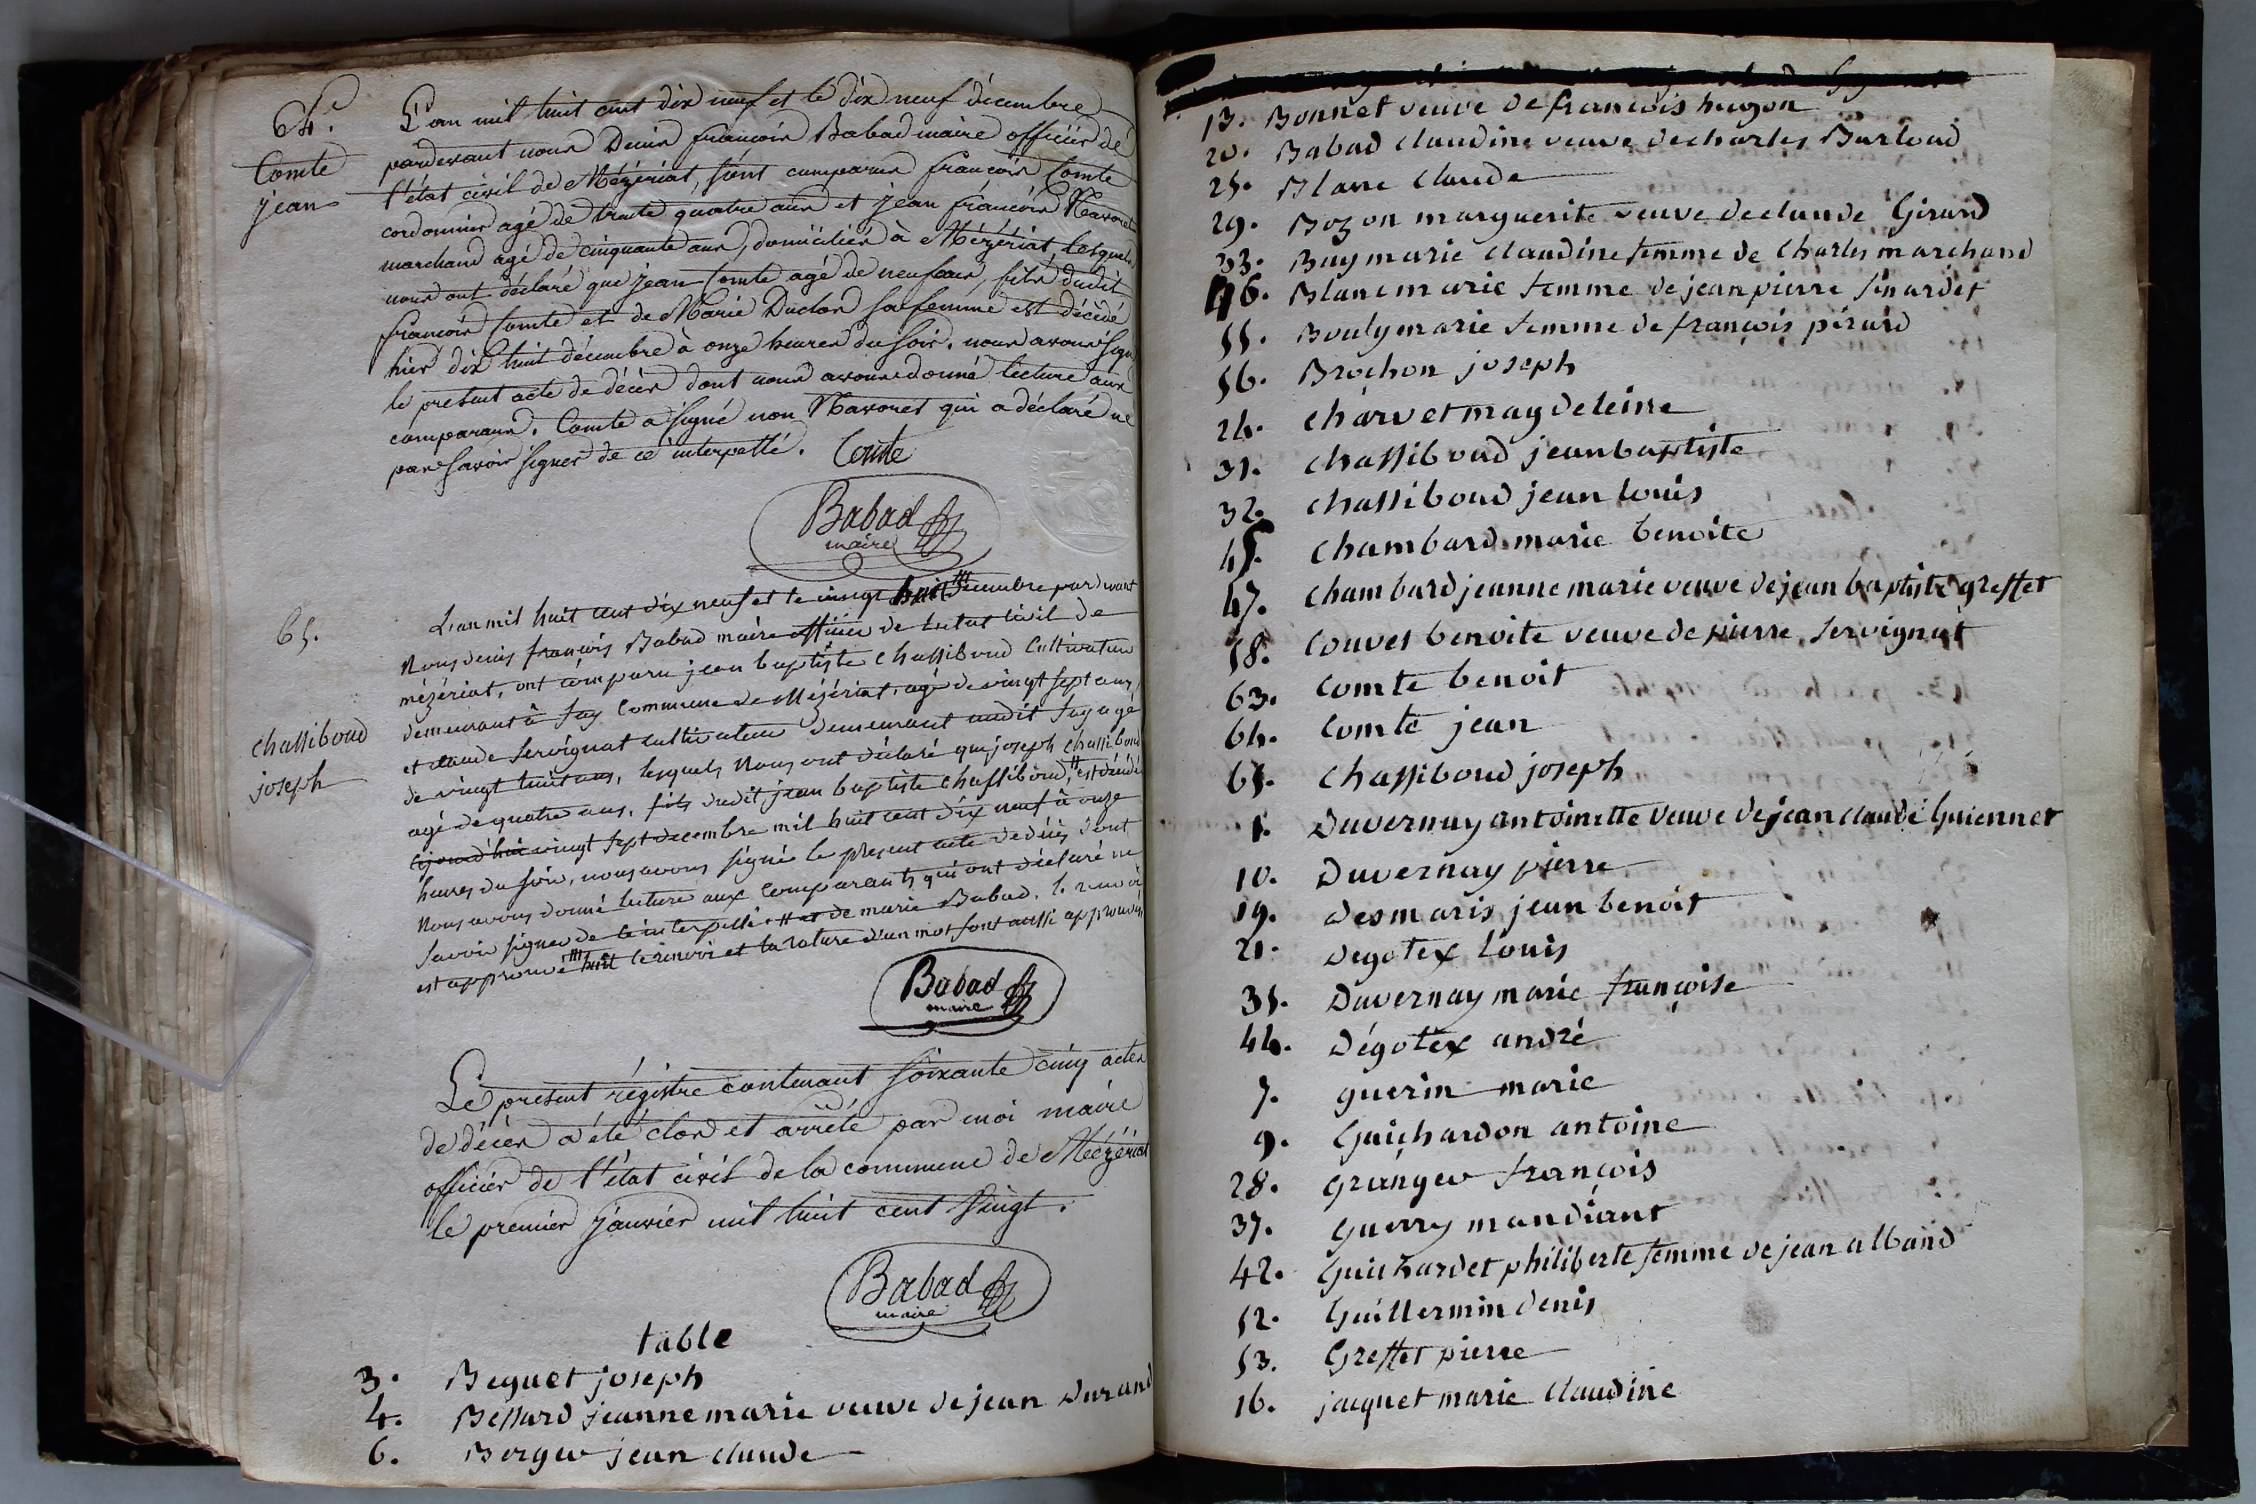 64.e
Comte
jean
L'an mil huit cent dix neuf et le dix neuf décembre
pardevant nous Denis françois Babad maire officier de
l'état civil de Mézériat, sont comparus françois Comte
cordonnier agé de trente quatre ans et jean françois Navoret
marchand agé de cinquante ans, domiciliés à Mézériat, lesquels
nous ont déclaré que jean Comte agé de neuf ans, fils dudit
françois Comte et de Marie Duclos sa femme est décédé
hier dix huit décembre à onze heures du soir. nous avons signé
le present acte de décès dont nous avons donné lecture aux
comparans. Comte a signé non Navoret qui a déclaré ne
pas savoir signer de ce interpellé. Comte
Babad
maire
65.
chassiboud
joseph
L'an mil huit cent dix neuf et le vingt huit décembre pardevant
Nous denis françois Babad maire officier de l'etat civil de
mézériat, ont comparu jean baptiste chassiboud Cultivateur
demeurant à fay Commune de Mézériat, agé de vingt sept ans,
et claude servignat cultivateur demeurant audit fay agé
de vingt huit ans, lesquels Nous ont déclaré que joseph chassiboud
agé de quatre ans, fils dudit jean baptiste chassiboud, # est décédé
vingt sept decembre mil huit cent dix neuf à onze
heures du soir, nous avons signé le present acte de décès dont
Nous avons donné lecture aux Comparants qui ont déclaré ne
savoir signer de ce interpellé. # et de marie Babad. le renvoi
est approuvé ### huit le renvoi et la rature d'un mot sont aussi approuvés
Babad
maire
Le present régistre contenant soixante cinq actes
de décès a été clos et arrêté par moi maire
officier de l'état civil de la commune de Mézériat
le premier janvier mil huit cent vingt.
Babad
maire
table
3. Beguet joseph
4. Bessard jeanne marie veuve de jean Durand
6. Berger jean claude
13. Bonnet veuve de francois hugon
20. Babad claudine veuve de charles Burtoud
25. Blanc claude
29. Bozon marguerite veuve de claude Girard
33. Buy marie claudine femme de Charles marchand
46. Blanc marie femme de jean pierre
55. Bouly marie femme de françois pérard
56. Brochon joseph
24. charvet magdeleine
31. chassiboud jean baptiste
32. chassiboud jean louis
45. chambard marie benoite
47. chambard jeanne marie veuve de jean baptiste greffet
58. Couvet benoite veuve de pierre servignat
63. comte benoit
64. comte jean
65. chassiboud joseph
1. Duvernay antoinette veuve de jean claude Guiennet
10. Duvernay pierre
19. desmaris jean benoit
21. degotex louis
35. Duvernay marie françoise
44. Dégotex andré
7. guerin marie
9. Guichardon antoine
28. granger françois
37. guerry mandiant
42. Guichardet philiberte femme de jean alband
52. Guillermin denis
53. Greffet pierre
16. jacquet marie claudine